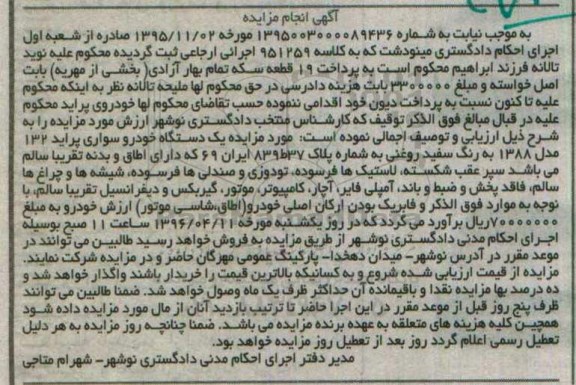 آگهی انجام مزایده
به موجب نیابت به شماره ۱۳۹۵۰۰۳۰۰۰۰۸۹۴۳۶ مورخه ۱۳۹۵/۱۱/۰۲ صادره از شعبه اول
اجرای احکام دادگستری مینودشت که به کلاسه ۹۵۱۲۵۹ اجرائی ارجاعی ثبت گردیده محکوم علیه نوید
تالانه فرزند ابراهیم محکوم است به پرداخت ۱۹ قطعه سکه تمام بهار آزادی( بخشی از مهریه) بابت
اصل خواسته و مبلغ ۳۳۰۰۰۰۰ بابت هزینه دادرسی در حق محکوم لها ملیحه تالانه نظر به اینکه محکوم
علیه تا کنون نسبت به پرداخت دیون خود اقدامی ننموده حسب تقاضای محکوم لها خودروی پراید محکوم
علیه در قبال مبالغ فوق الذکر توقیف که کارشناس منتخب دادگستری نوشهر ارزش مورد مزایده را به
شرح ذیل ارزیابی و توصیف اجمالی نموده است: مورد مزایده یک دستگاه خودرو سواری پراید ۱۳۲
مدل ۱۳۸۸ به رنگ سفید روغنی به شماره پلاک ۳۷ط۸۳۹ ایران ۶۹ که دارای اطاق و بدنه تقریبا سالم
می باشد سپر عقب شکسته، لاستیک ها فرسوده، تودوزی و صندلی ها فرسوده، شیشه ها و چراغ ها
سالم، فاقد پخش و ضبط و باند، آمپلی فایر، آچار، کامپیوتر، موتور، گیربکس و دیفرانسیل تقریبا سالم، با
توجه به موارد فوق الذکر و فابریک بودن ارکان اصلی خودرو(اطاق،شاسی، موتور) ارزش خودرو به مبلغ
۷۰۰۰۰۰۰۰ریال برآورد می گردد که در روز یکشنبه مورخه ۱۳۹۶/۰۴/۱۱ ساعت ۱۱ صبح بوسیله
اجرای احکام مدنی دادگستری نوشهر از طریق مزایده به فروش خواهد رسید طالبین می توانند در
موعد مقرر در آدرس نوشهر- میدان دهخدا- پارکینگ عمومی مهرگان حاضر و در مزایده شرکت نمایند.
مزایده از قیمت ارزیابی شده شروع و به کسانیکه بالاترین قیمت را خریدار باشند واگذار خواهد شد و
ده درصد بها مزایده نقدا و باقیمانده آن حداکثر ظرف یک ماه وصول خواهد شد. ضمنا طالبین می توانند
ظرف پنج روز قبل از موعد مقرر در این اجرا حاضر تا ترتیب بازدید آنان از مال مورد مزایده داده شود
همچین کلیه هزینه های متعلقه به عهده برنده مزایده می باشد. ضمنا چنانچه روز مزایده به هر دلیل
تعطیل رسمی اعلام گردد روز بعد از تعطیل روز مزایده خواهد بود.
مدیر دفتر اجرای احکام مدنی دادگستری نوشهر- شهرام متاجی